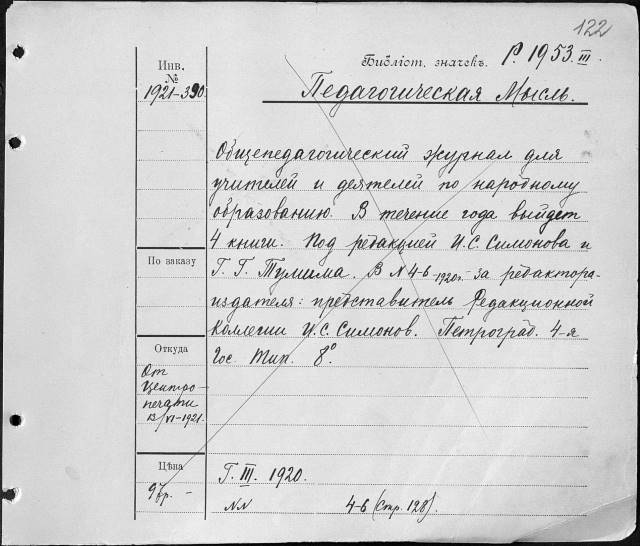 122
Инв. №
1921-390.
Библіот. значекъ. Р. 1953.III.
Педагогическая Мысль.
Общепедагогический журнал для
учителей и деятелей по народному
образованию. В течение года выйдет
4 книги. Под редакцией И. С. Симонова и
Г. Г. Тумима. В N 4-6 1920г. за редактора-
издателя: представитель Редакционной
Коллегии И. С. Симонов. Петроград. 4-я
Гос. Тип. 8°.
По заказу
Откуда
От
Центро-
печати
/VI-1921.
Цѣна
9 р. -
Г. III. 1920.
NN 4-6 (Стр. 128).